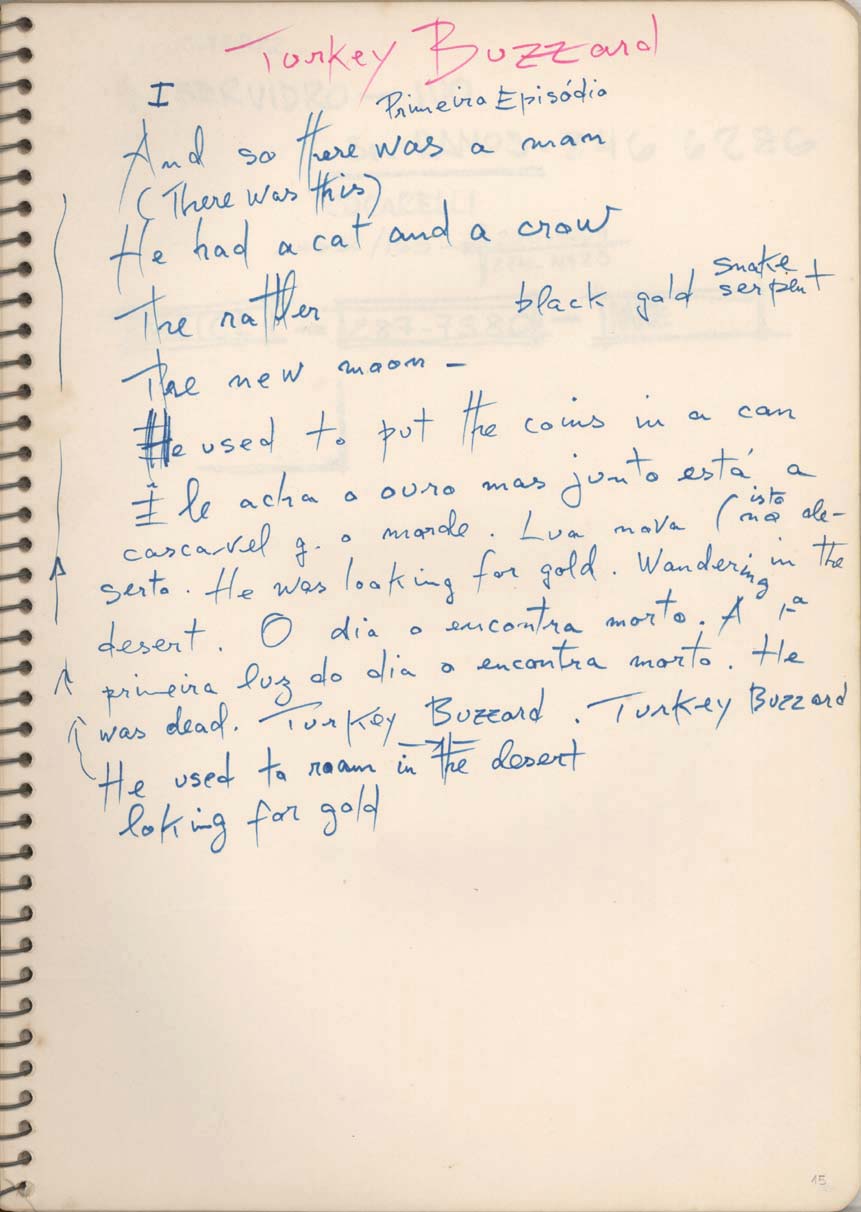 Turkey Buzzard
I
Primeira Episódio
And so there was a man
(There was this)
He had a cat and a crow
The rattler
black gold snake
serpent
The new moon -
He used to put the coins in a can
Ile acha o ouro mas junto está a
cascavel q. o morde. Lua nova (isto no de-
serto. He was looking for gold. Wandering in the
desert. O dia o encontra morto. A 1ª
primeira luz do dia o encontra morto. He
was dead. Turkey Buzzard. Turkey Buzzard
He used to roam in the desert
loking for gold
15